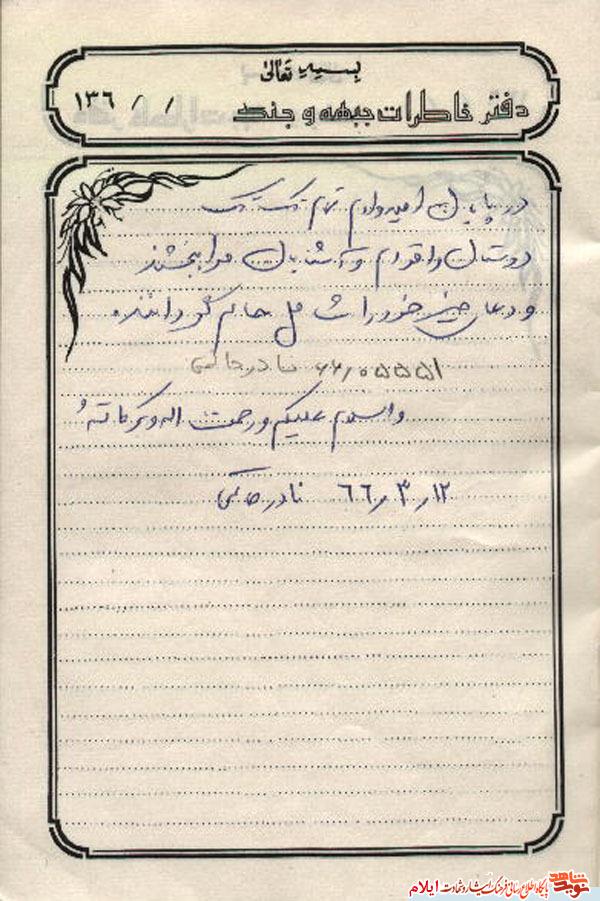 بسمه تعالی
دفتر خاطرات جبهه و جنگ
/ / ۱۳۶
در پایان امیدوارم تمام تک تک
دوستان و اقوام و آشنایان مرا ببخشند
و دعای خیر خود را شامل حالم گردانند
نادر حاکمی
والسلام علیکم و رحمت اله و برکاته
۱۲ر۳ر۶۶ نادر حاکمی
نوید شاهد پایگاه اطلاع رسانی فرهنگ ایثار و شهادت ایلام